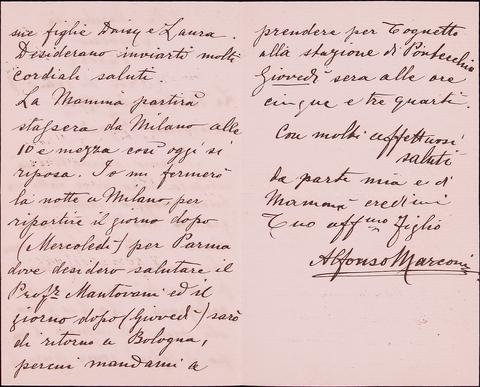 sue figlie Daisy e Laura.
Desiderano inviarti molti
cordiali saluti.
La Mamma partirà
stassera da Milano alle
10 e mezza così oggi si
riposa. Io mi fermerò
la notte a Milano, per
ripartire il giorno dopo
(Mercoledì) per Parma
dove desidero salutare il
Profr. Mantovani ed il
giorno dopo (Giovedì) sarò
di ritorno a Bologna,
percui mandami a
prendere per Tognetto
alla stazione di Pontecchio
Giovedì sera alle ore
cinque e tre quarti.
Con molti affettuosi
saluti
da parte mia e di
Mamma credimi
Tuo affmo figlio
Alfonso Marconi